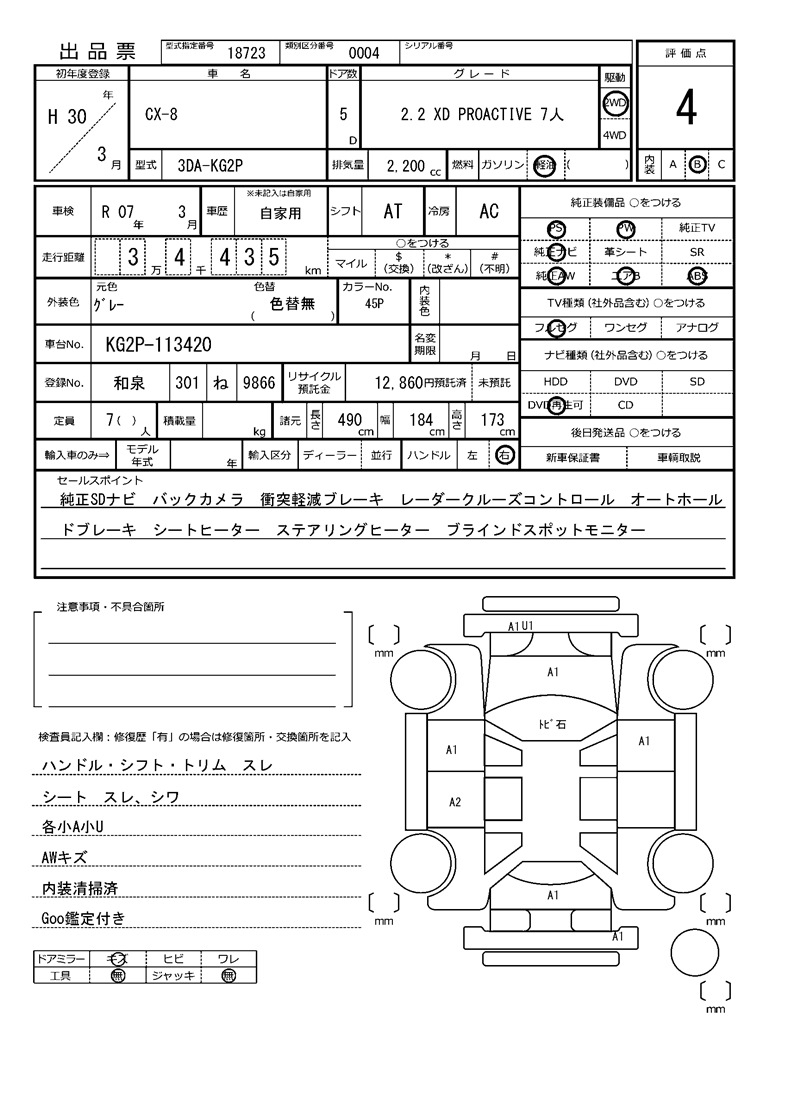 出品票 型式指定番号 18723 類別区分番号 0004 シリアル番号
評価点
4
内装 A B C
初年度登録 車名 ドア数 グレード 駆動
H 30 年 3 月 CX-8 5 D 2.2 XD PROACTIVE 7人 2WD
4WD
型式 3DA-KG2P 排気量 2,200 cc 燃料 ガソリン 軽油 ( )
車検 R 07 年 3 月 車歴 ※未記入は自家用 自家用 シフト AT 冷房 AC
走行距離 3 万 4 千 4 3 5 km ○をつける
マイル $ (交換) * (改ざん) # (不明)
外装色 元色 グレー 色替 色替無 ( ) カラーNo. 45P 内装色
車台No. KG2P-113420 名変期限 月 日
登録No. 和泉 301 ね 9866 リサイクル預託金 12,860円預託済 未預託
定員 7( )人 積載量 kg 諸元 長さ 490 cm 幅 184 cm 高さ 173 cm
輸入車のみ⇒ モデル年式 年 輸入区分 ディーラー 並行 ハンドル 左 右
純正装備品 ○をつける
PS PW 純正TV
純正ナビ 革シート SR
純正AW エアB ABS
TV種類(社外品含む)○をつける
フルセグ ワンセグ アナログ
ナビ種類(社外品含む)○をつける
HDD DVD SD
DVD再生可 CD
後日発送品 ○をつける
新車保証書 車輌取説
セールスポイント
純正SDナビ バックカメラ 衝突軽減ブレーキ レーダークルーズコントロール オートホール
ドブレーキ シートヒーター ステアリングヒーター ブラインドスポットモニター
注意事項・不具合箇所
検査員記入欄：修復歴「有」の場合は修復箇所・交換箇所を記入
ハンドル・シフト・トリム スレ
シート スレ、シワ
各小A小U
AWキズ
内装清掃済
Goo鑑定付き
ドアミラー キズ ヒビ ワレ
工具 無 ジャッキ 無
A1 U1
mm mm
A1
トビ石
A1 A1
A2
A1
mm mm
A1
mm